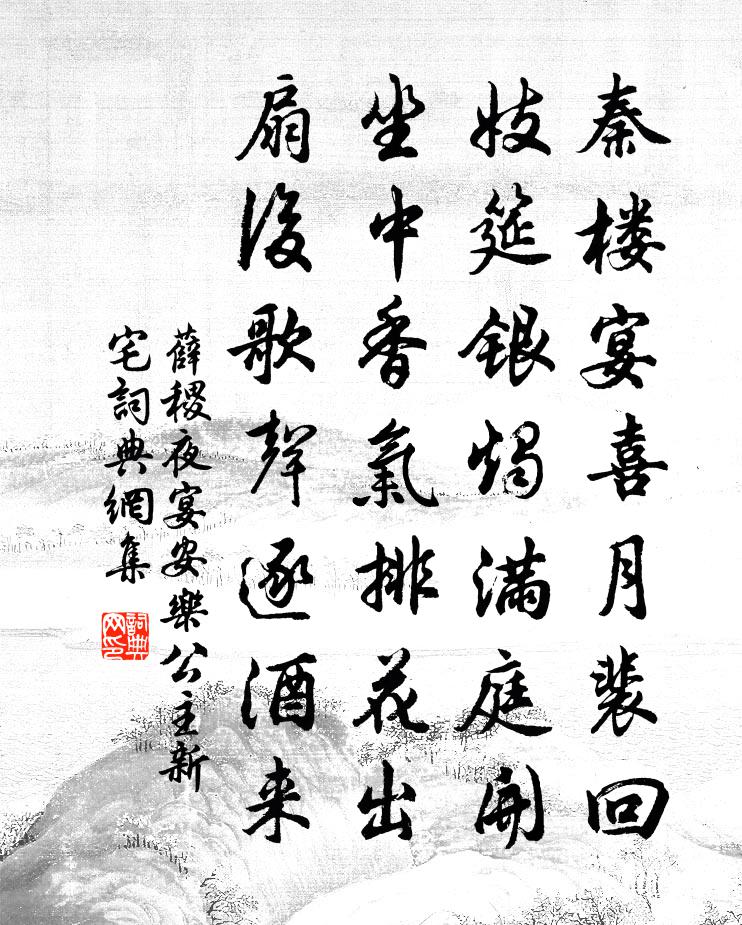 秦楼宴喜月裴回
妓筵银烛满庭开
坐中香氣排花出
扇後歌聲逐酒来
薛稷夜宴安樂公主新
宅詞典網集
詞典
网印